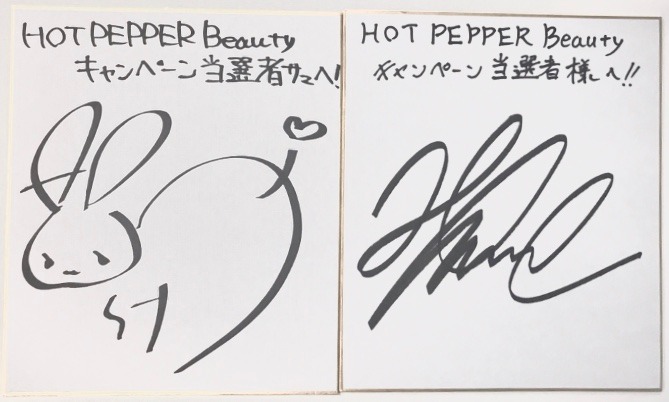 HOT PEPPER Beauty
キャンペーン当選者サマへ!
HOT PEPPER Beauty
キャンペーン当選者様へ!!